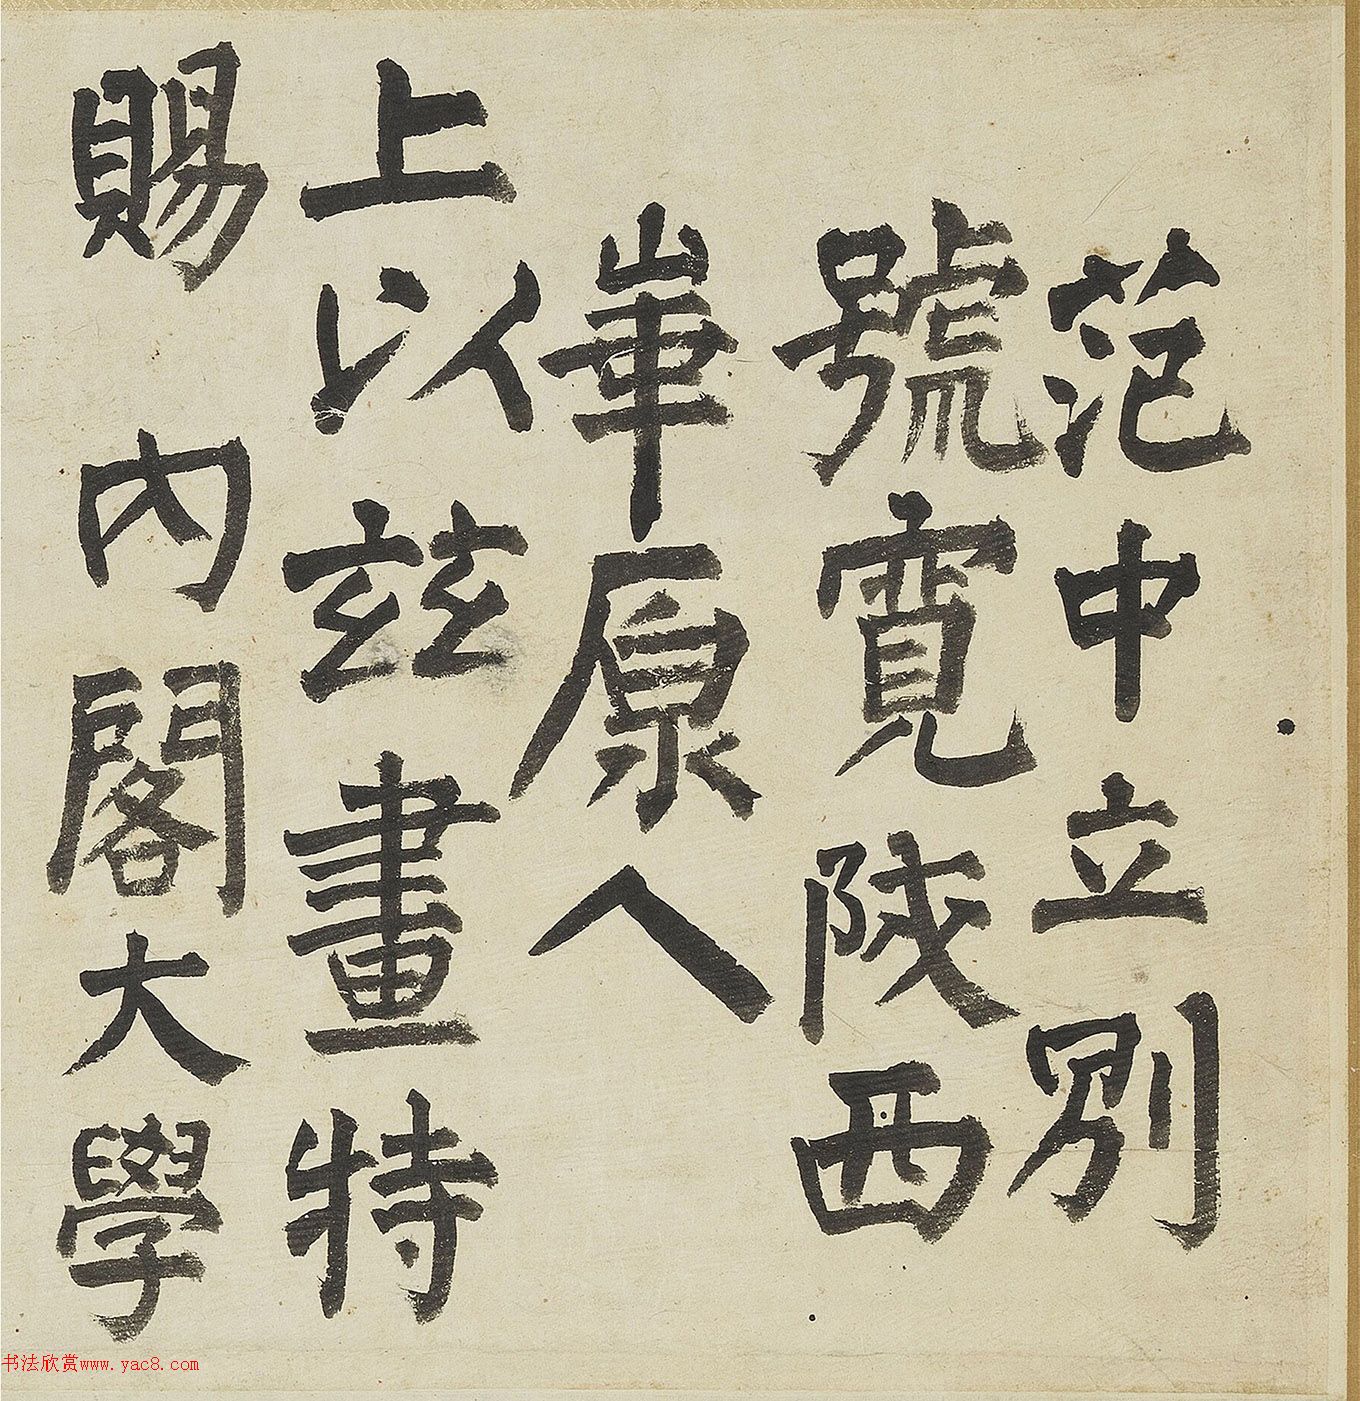 范中立別
號寬陝西
崋原人
上以茲畫特
賜內閣大學
书法欣赏www.yac8.com